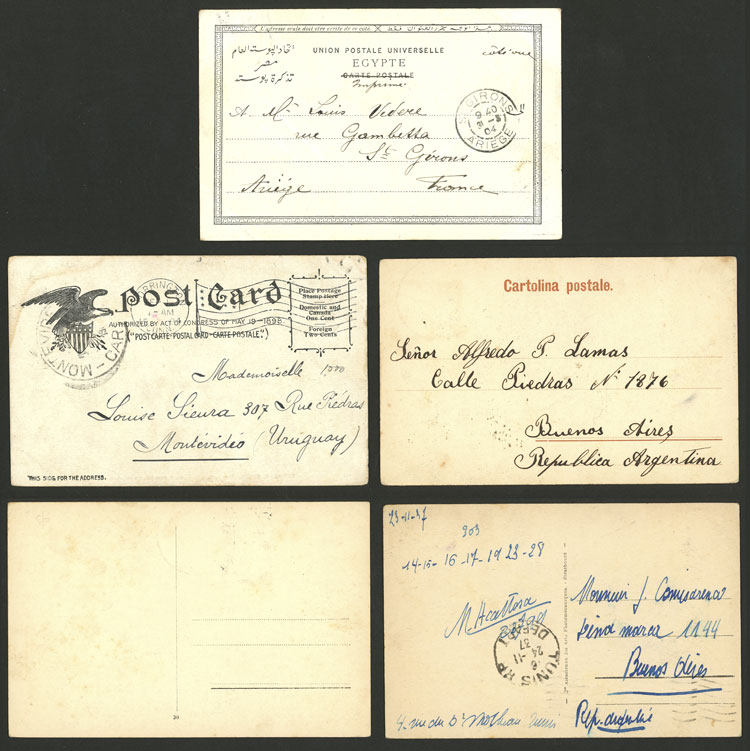 L'adresse seule doit être écrite de ce côté.
UNION POSTALE UNIVERSELLE
EGYPTE
CARTE POSTALE
اتحاد البوستة العام
مصر
تذكرة بوستة
Imprimé
A. Mr Louis Videre
rue Gambetta
St Gérons
Ariège France
ST GIRONS
9 40
04
ARIEGE
Post Card
AUTHORIZED BY ACT OF CONGRESS OF MAY 19-1898
("POST CARTE-POSTAL CARD-CARTE POSTALE.")
Place Postage
Stamp Here
Domestic and
Canada
One Cent
Foreign
Two Cents
AM
MONTE
CAR
Mademoiselle
Louise Sieura 307 Rue Piedras
Montévidéo (Uruguay)
THIS SIDE FOR THE ADDRESS.
Cartolina postale.
Señor Alfredo P. Lamas
Calle Piedras N° 1876
Buenos Aires
Republica Argentina
30
23-11-37
303
14-15-16-17-19 23-28
TUNIS RP
DEPART
24-11
37
Monsieur J.
1144
Buenos Aires
Rep.